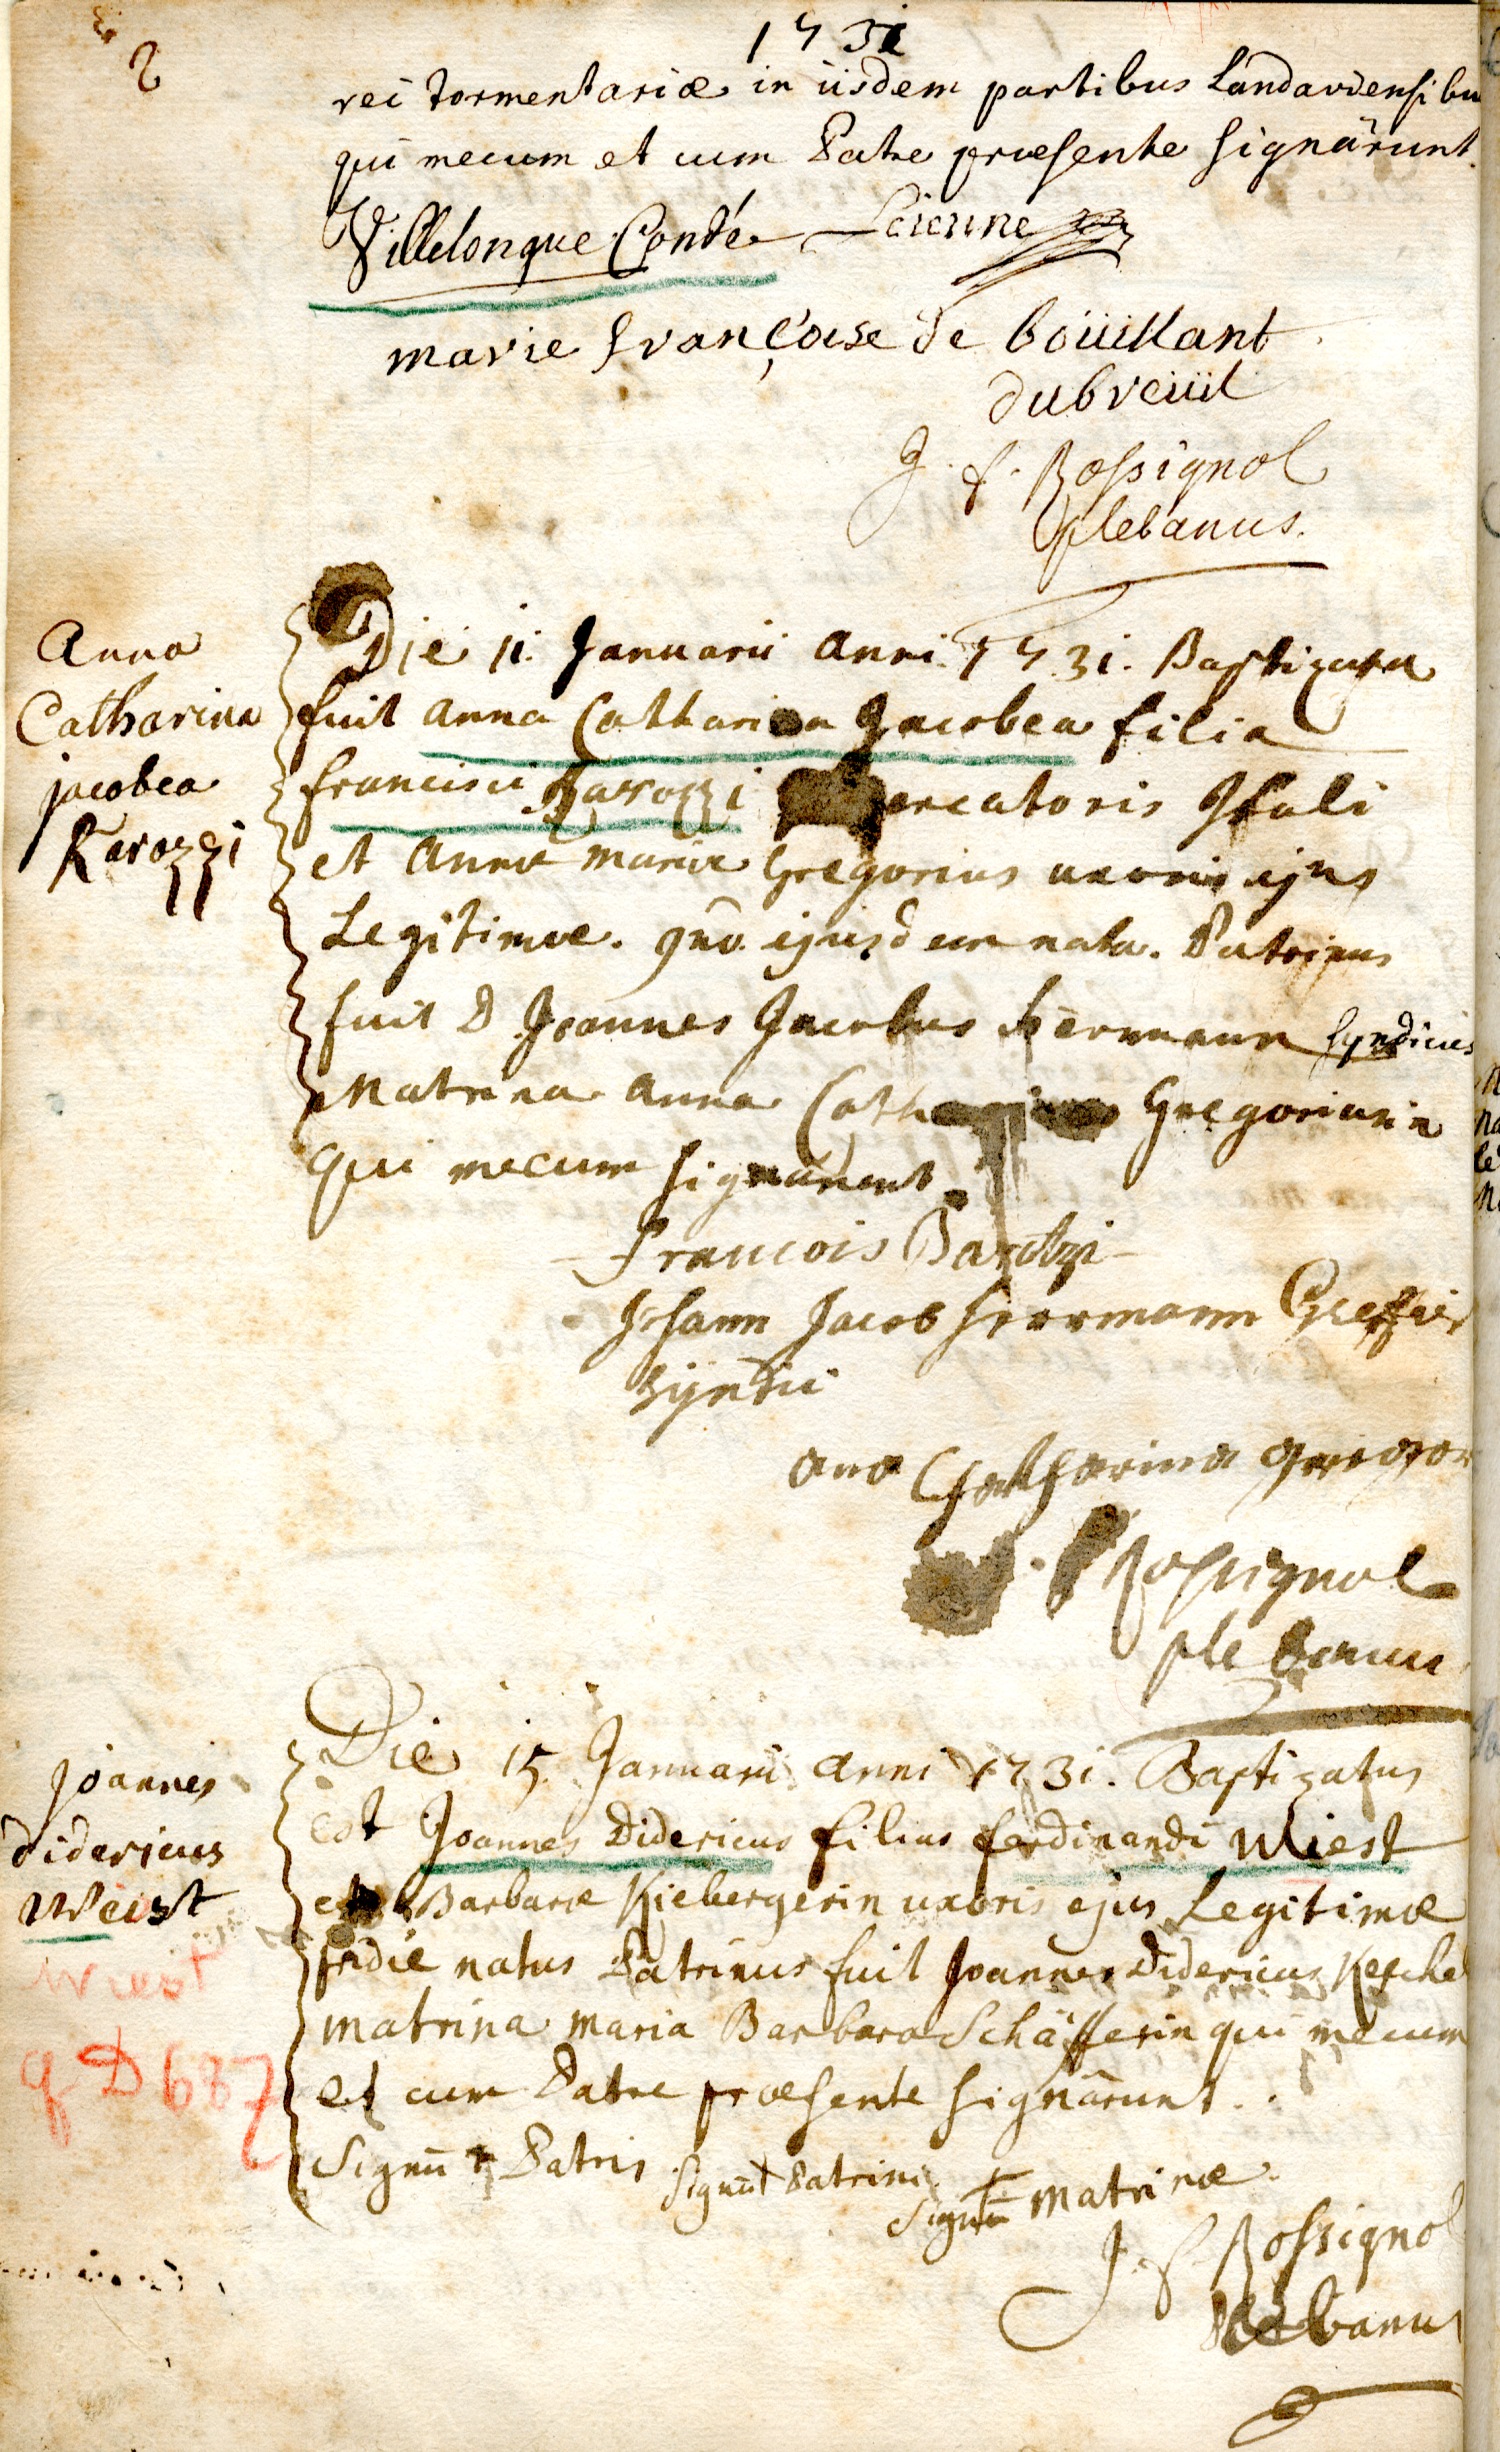 2
1731
rei tormentariæ in iisdem partibus Landaviensibu
qui mecum et cum Patre præsente signârunt.
Villelongue Condé
marie françoise de boüillant
dubreüil
J. f. Rossignol
plebanus.
Anna
Catharina
jacobea
Karozzi
Die 11. Januarii anni 1731. Baptizata
fuit anna Catharina Jacobea filia
francisci Barozzi mercatoris Itali
et annæ mariæ Gregorius uxoris ejus
Legitimæ. ejusdem nata. Patrinus
fuit D Joannes Jacobus Herrmann syndicus
Matrina anna Catharina Gregoriusin
qui mecum signârunt.
Francois Barotzi
Johann Jacob Herrmann Greffier
Syndic
ana Chatharina gregor
Rossignol
plebanus
joannes
didericus
Weist
Wiest
q D 687
Die 15. Januarii anni 1731. Baptizatus
est Joannes Didericus filius ferdinandi Wiest
et Barbaræ Kiebergerin uxoris ejus Legitimæ
pridie natus Patrinus fuit Joannes Didericus Kesche
matrina maria Barbara Schäfferin qui mecum
et cum Patre præsente signârunt.
Signū + Patris Signū + Patrini
Signū + matrinæ.
J. f. Rossigno
Plebanus